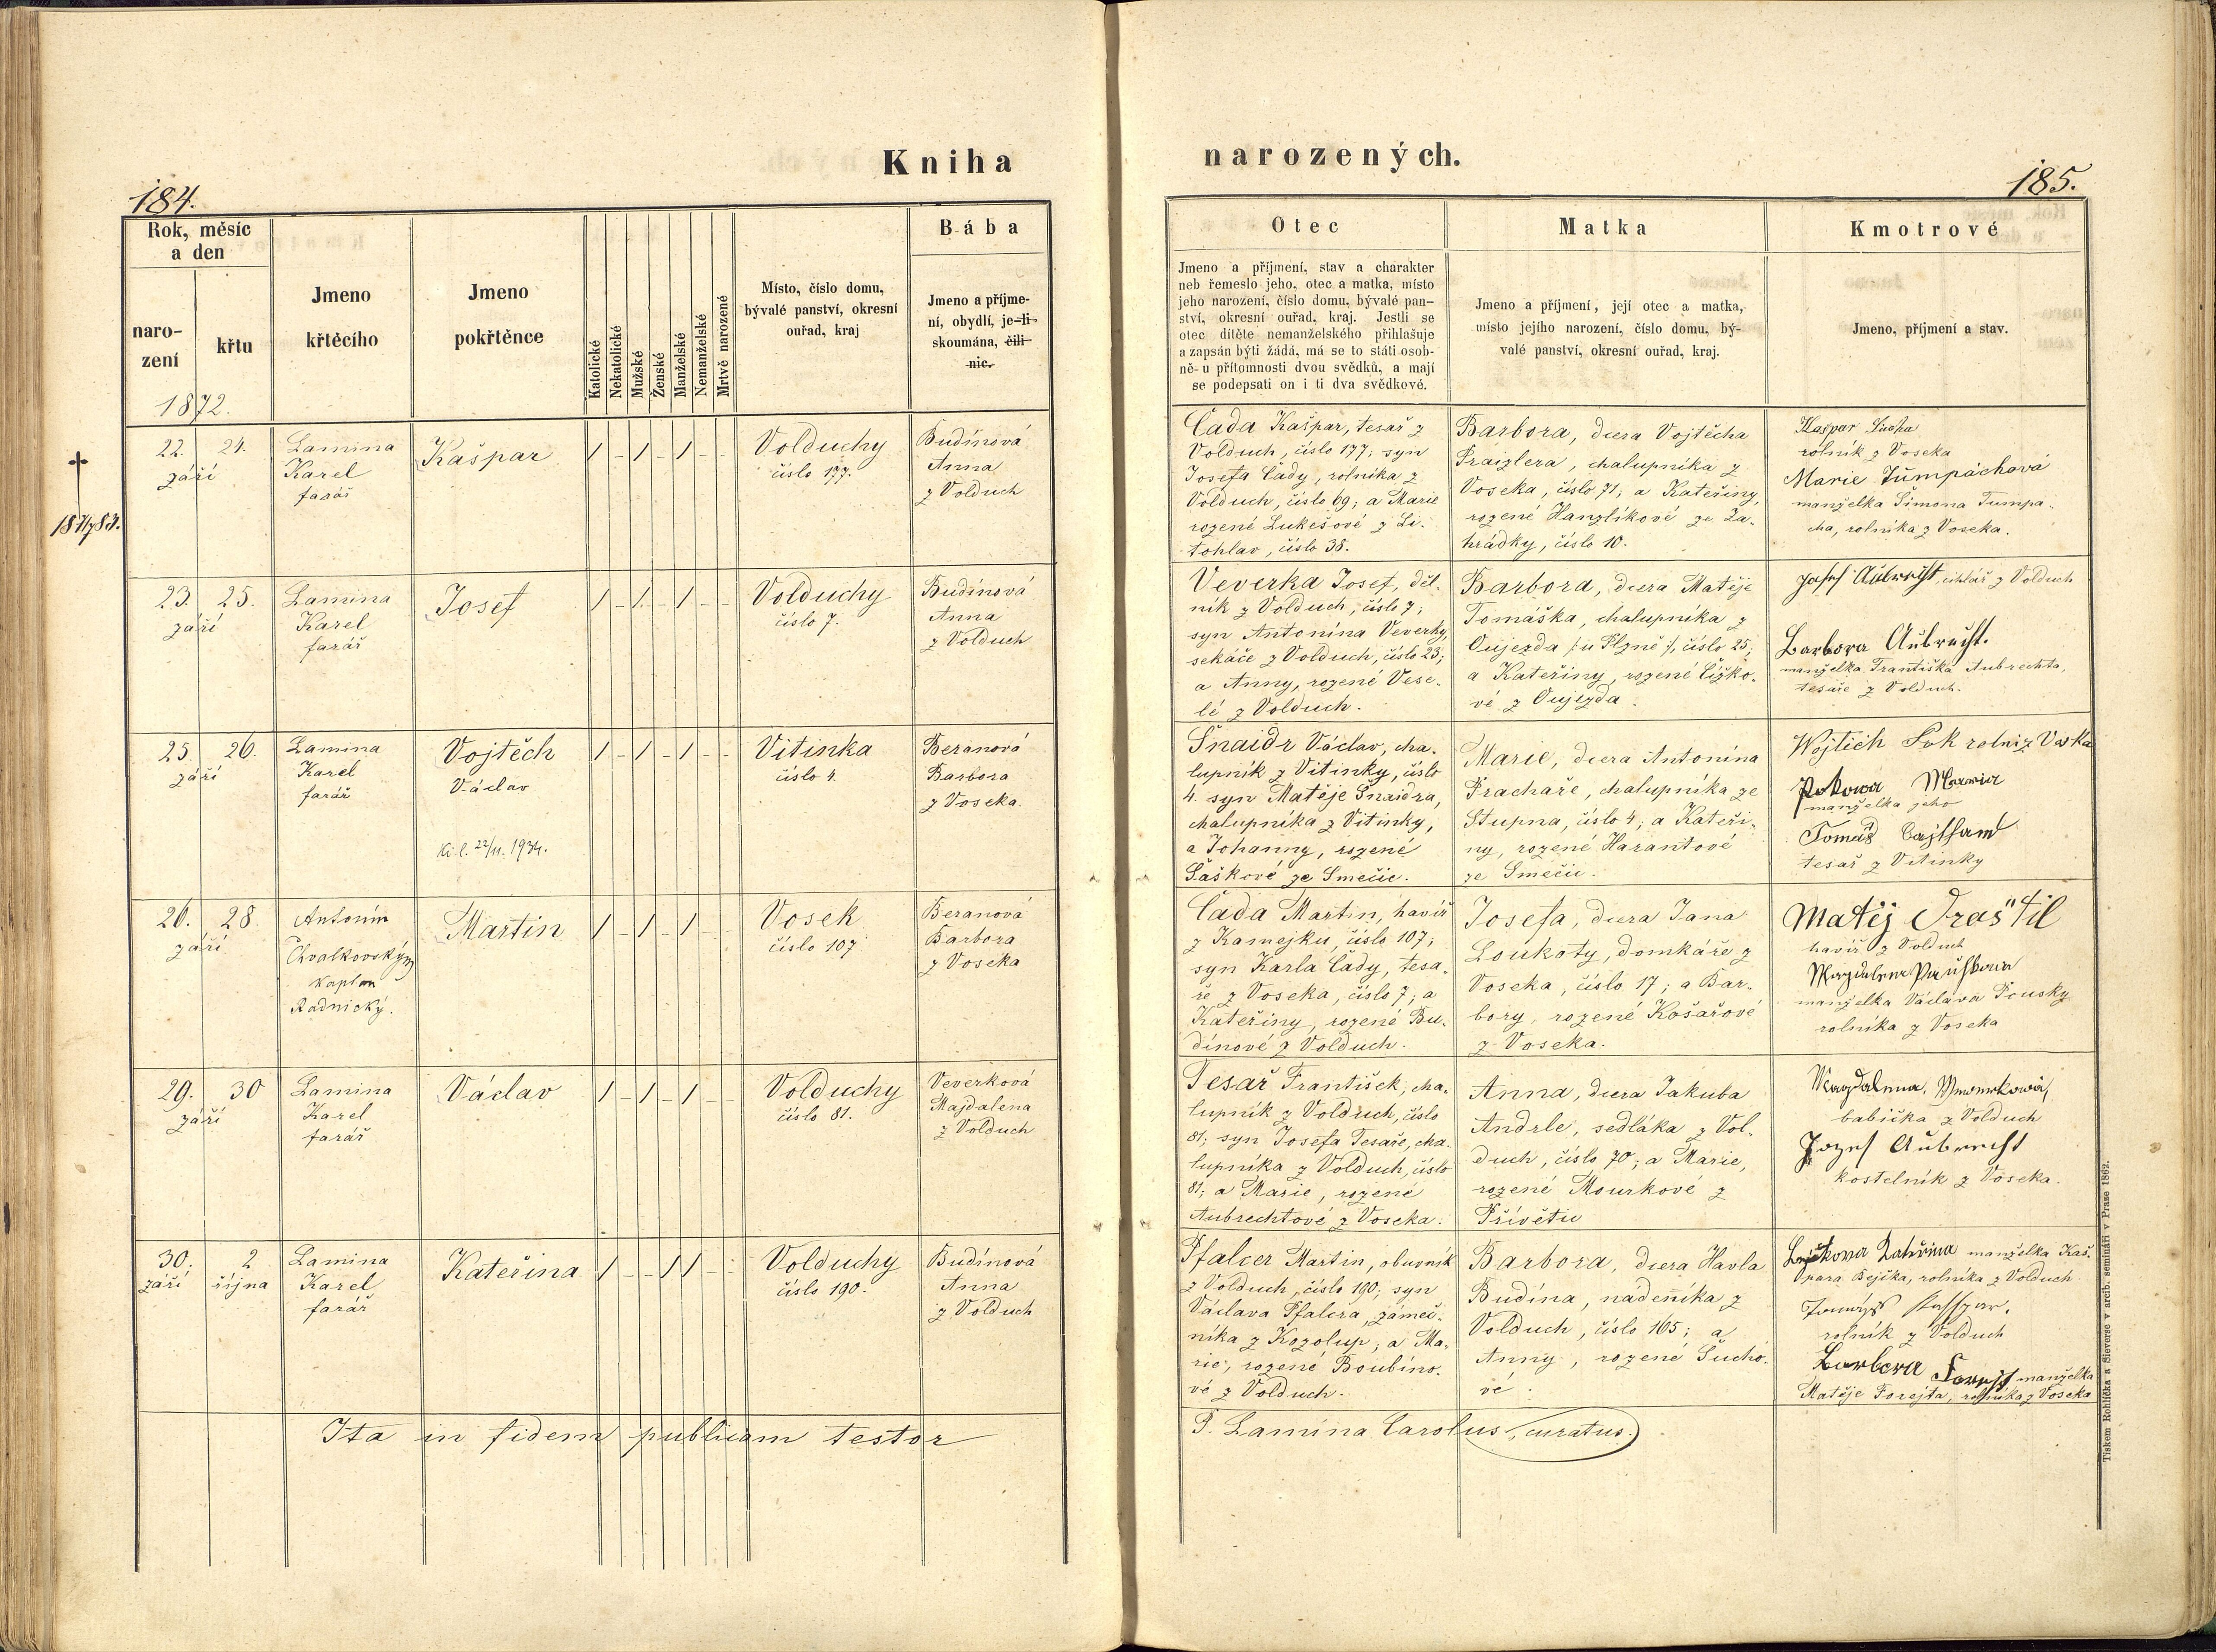 Kniha
184.
Rok, měsíc
a den
naro-
zení
křtu
1872.
Jmeno
křtěcího
Jmeno
pokřtěnce
Katolické
Nekatolické
Mužské
Ženské
Manželské
Nemanželské
Mrtvě narozené
Místo, číslo domu,
bývalé panství, okresní
ouřad, kraj
Bába
Jmeno a příjme-
ní, obydlí, je-li
skoumána, čili
nic.
22. 24.
září
Lamina
Karel
farář
Kašpar
/ - / - / - -
Volduchy
číslo 177.
Budínová
Anna
z Volduch
23. 25.
září
Lamina
Karel
farář
Josef
/ - / - / - -
Volduchy
číslo 7.
Budínová
Anna
z Volduch
25. 26.
září
Lamina
Karel
farář
Vojtěch
Václav
22/11. 1934.
/ - / - / - -
Vitinka
číslo 4.
Beranová
Barbora
z Voseka.
26. 28.
září
Antonín
Chvalkovský
kaplan
Radnický.
Martin
/ - / - / - -
Vosek
číslo 107
Beranová
Barbora
z Voseka
29. 30
září
Lamina
Karel
farář
Václav
/ - / - / - -
Volduchy
číslo 81.
Veverková
Majdalena
z Volduch
30. 2
září října
Lamina
Karel
farář
Kateřina
/ - - / / - -
Volduchy
číslo 190.
Budínová
Anna
z Volduch
Ita in fidem publicam testor
narozených.
185.
Otec
Jmeno a příjmení, stav a charakter
neb řemeslo jeho, otec a matka, místo
jeho narození, číslo domu, bývalé pan-
ství, okresní ouřad, kraj. Jestli se
otec dítěte nemanželského přihlašuje
a zapsán býti žádá, má se to státi osob-
ně u přítomnosti dvou svědků, a mají
se podepsati on i ti dva svědkové.
Matka
Jmeno a příjmení, její otec a matka,
místo jejího narození, číslo domu, bý-
valé panství, okresní ouřad, kraj.
Kmotrové
Jmeno, příjmení a stav.
Čada Kašpar, tesař z
Volduch, číslo 177; syn
Josefa Čady, rolníka z
Volduch, číslo 69; a Marie
rozené Lukešové z Li-
tohlav, číslo 38.
Barbora, dcera Vojtěcha
Fraizlera, chalupníka z
Voseka, číslo 71; a Kateřiny,
rozené Hanzlíkové ze Za-
hrádky, číslo 10.
Kašpar Sucha
rolník z Voseka
Marie Tumpáchová
manželka Šimona Tumpa-
cha, rolníka z Voseka.
Veverka Josef, děl-
ník z Volduch, číslo 7;
syn Antonína Veverky,
sekáče z Volduch, číslo 23;
a Anny, rozené Vese-
lé z Volduch.
Barbora, dcera Matěje
Tomáška, chalupníka z
Oujezda /:u Plzně:/, číslo 25;
a Kateřiny, rozené Čížko-
vé z Oujezda.
Josef Aubrecht, cihlář z Volduch
Barbora Aubrecht.
manželka Františka Aubrechta,
tesaře z Volduch.
Šnaidr Václav, cha-
lupník z Vitinky, číslo
4. syn Matěje Šnaidra,
chalupníka z Vitinky,
a Johanny, rozené
Šaškové ze Smečic.
Marie, dcera Antonína
Prachaře, chalupníka ze
Stupna, číslo 4; a Kateři-
ny, rozené Harantové
ze Smečic.
Wojtěch
manželka jeho
Tomáš
tesař z Vitinky
Čada Martin, havíř
z Kamejku, číslo 107;
syn Karla Čady, tesa-
ře z Voseka, číslo 7; a
Kateřiny, rozené Bu-
dínové z Volduch.
Josefa, dcera Jana
Loukoty, domkáře z
Voseka, číslo 17; a Bar-
bory, rozené Košařové
z Voseka.
Matěj Fraštil
havíř z Volduch
Magdalena Pauškowa
manželka Václava Pousky
rolníka z Voseka
Tesař František, cha-
lupník z Volduch, číslo
81; syn Josefa Tesaře, cha-
lupníka z Volduch, číslo
81; a Marie, rozené
Aubrechtové z Voseka.
Anna, dcera Jakuba
Andrle, sedláka z Vol-
duch, číslo 70; a Marie,
rozené Mourkové z
Přívětic
Magdalena, Wewerkowá,
babička z Volduch
Jozef Aubrecht
kostelník z Voseka.
Pfalcer Martin, obuvník
z Volduch, číslo 190; syn
Václava Pfalcra, zámeč-
níka z Kozolup; a Ma-
rie, rozené Boubíno-
vé z Volduch.
Barbora, dcera Havla
Budína, nádeníka z
Volduch, číslo 165; a
Anny, rozené Sucho-
vé.
Bejčkowa Kateřina manželka Kaš-
para Bejčka, rolníka z Volduch.
rolník z Volduch
Barbora Forejt manželka
Matěje Forejta, rolníka z Voseka
P. Lamina Carolus, curatus.
Tiskem Rohlíčka a Sieverse v arcib. semináři v Praze 1862.